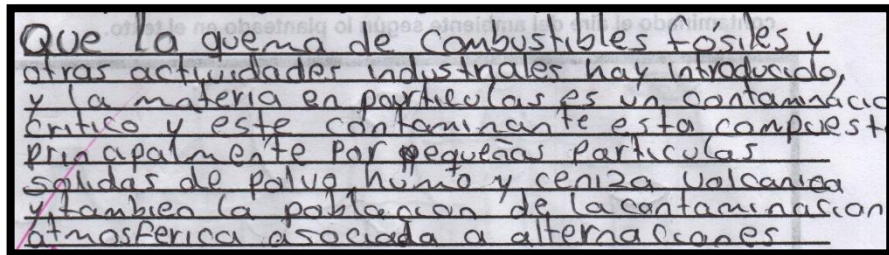 Que la quema de Combustibles fósiles y
otras actividades industriales hay introducido,
y la materia en particulas es un contaminácio
Critico y este contaminante esta compuest
principalmente Por pequeñas Particulas
solidas de polvo, humo y ceniza volcanica
y tambien la poblacion de la contaminacion
atmosferica asociada a alternaciones